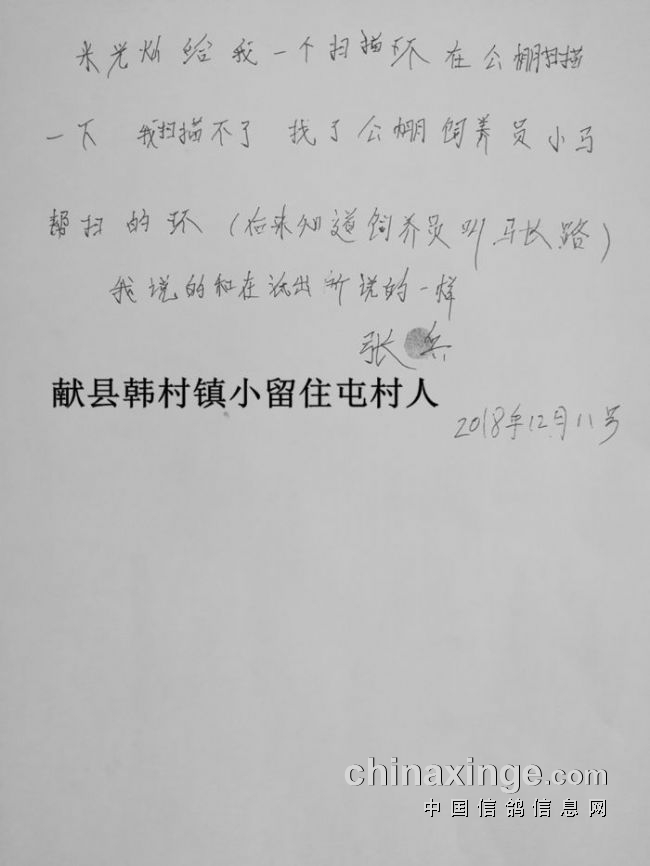 米光灿给我一个扫描环在公棚扫描
一下 我扫描不了 找了公棚饲养员小马
帮扫的环(后来知道饲养员叫马长路)
我说的和在派出所说的一样
张兵
献县韩村镇小留住屯村人
2018年12月11号
chinaxinge.com
中国信鸽信息网